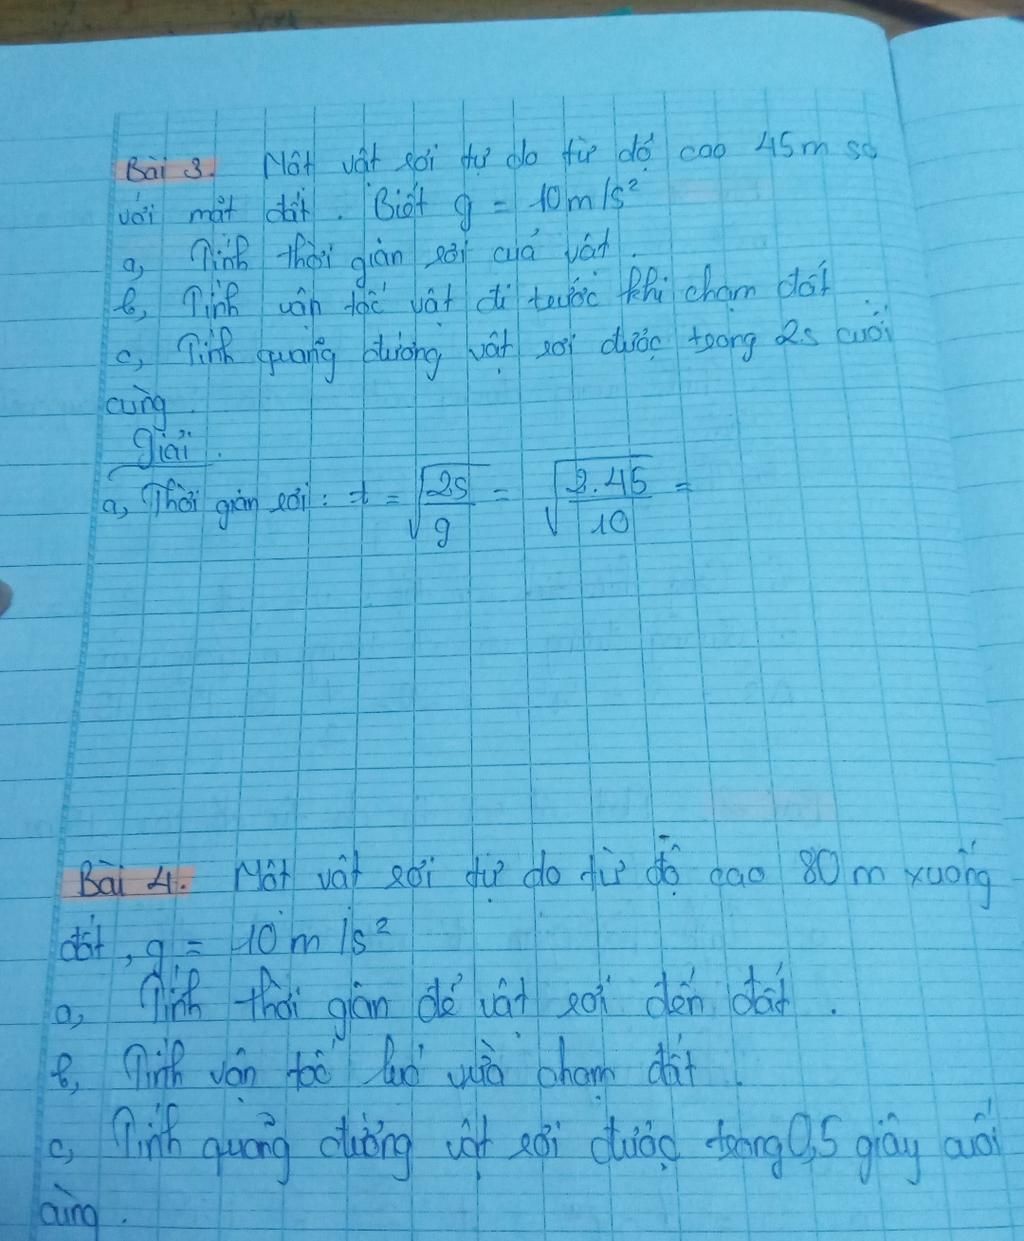 Bài 3. Một vật rơi tự do từ độ cao 45m so
với mặt đất. Biết g = 10m/s²
a, Tính thời gian rơi của vật.
b, Tính vận tốc vật đi trước khi chạm đất
c, Tính quãng đường vật rơi được trong 2s cuối
cùng.
Giải.
a, Thời gian rơi: t = √(2s/g) = √(2.45/10) =
Bài 4. Một vật rơi tự do từ độ cao 80m xuống
đất, g = 10m/s²
a, Tính thời gian để vật rơi đến đất.
b, Tính vận tốc lúc vừa chạm đất.
c, Tính quãng đường vật rơi được trong 0,5 giây cuối
cùng.